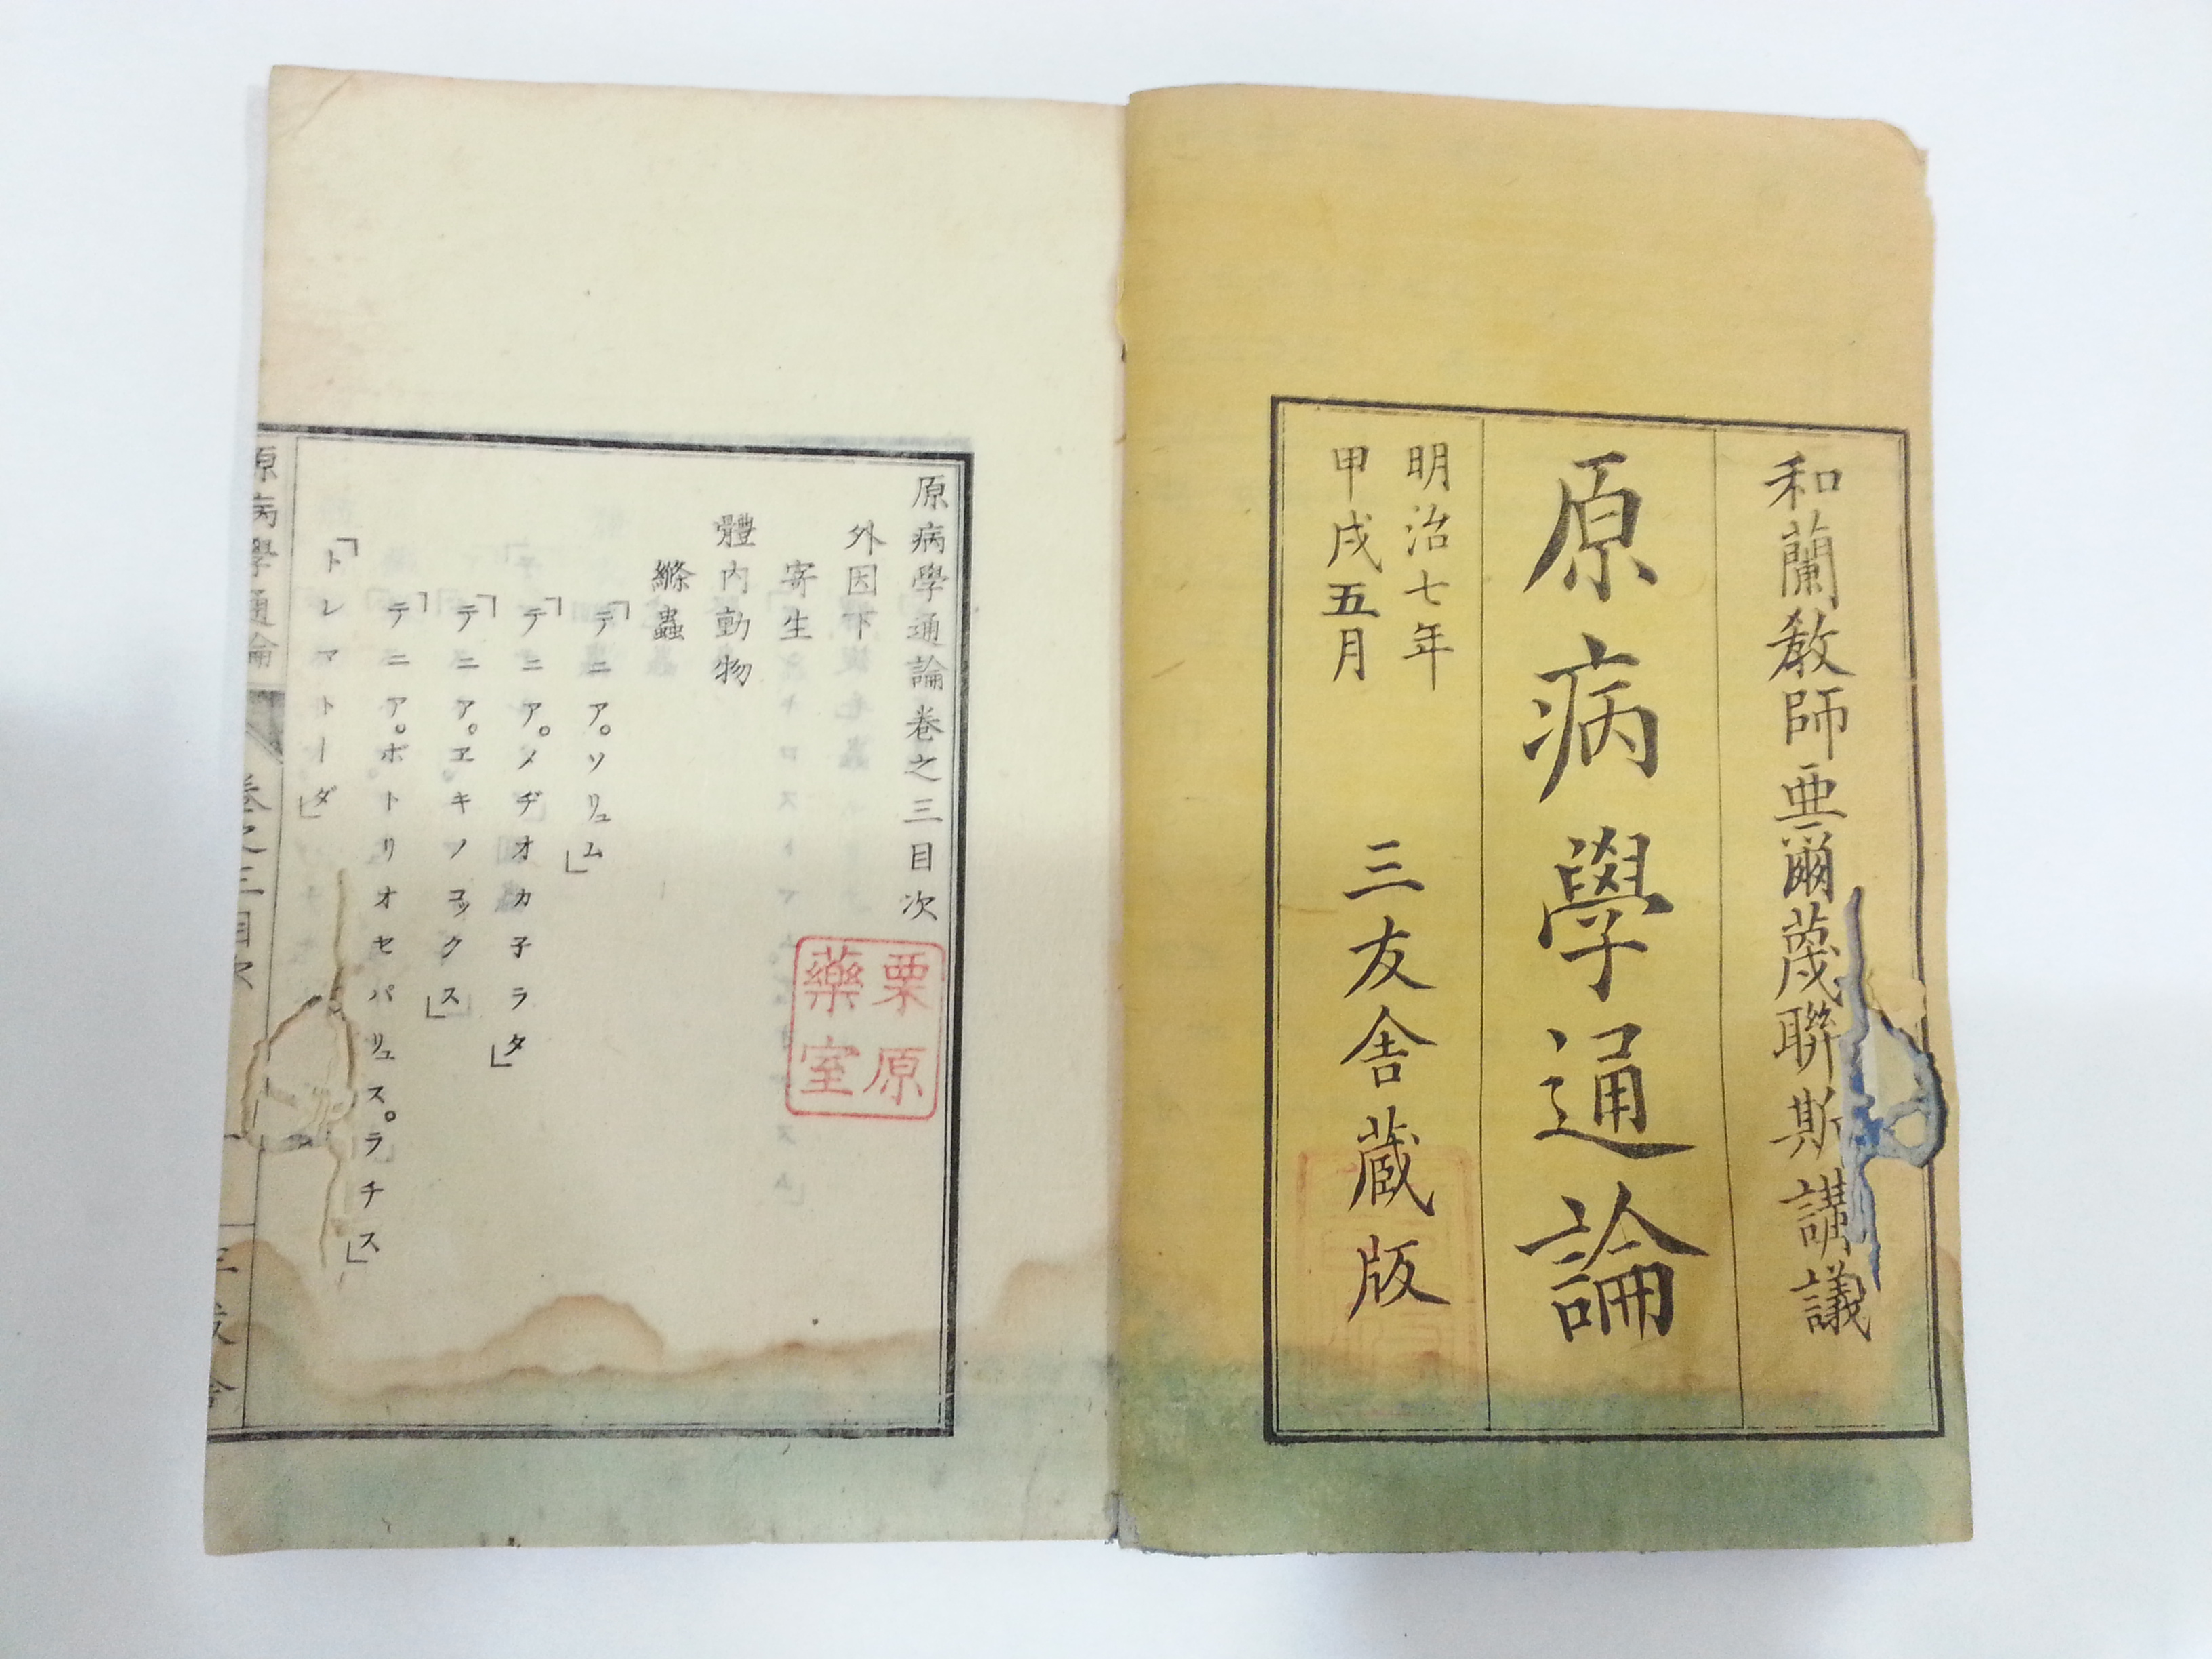 和蘭教師亜爾蔑聯斯講議
原病學通論
明治七年
甲戌五月
三友舎蔵版
原病學通論巻之三目次
外因下
寄生
體内動物
絛蟲
「テニア。ソリュム」
「テニア。メヂオカ子ラタ」
「テニア。ヱキノコックス」
「テニア。ボトリオセパリュス。ラチス」
「トレマトーダ」
原病學通論
巻之三目次
栗原
藥室